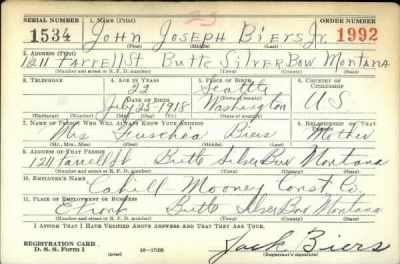 23
SERIAL NUMBER 1. NAME (Print) ORDER NUMBER
1534 JOHN JOSEPH BIERS Jr. 1992
(First) (Middle) (Last)
2. ADDRESS (Print)
1211 FARRELL St BUTTE SILVER BOW MONTANA
(Number and street or R. F. D. number) (Town) (County) (State)
3. TELEPHONE 4. AGE IN YEARS 5. PLACE OF BIRTH 6. COUNTRY OF CITIZENSHIP
22 Seattle
DATE OF BIRTH (Town or county)
July 25-1918 Washington U.S.
(Exchange) (Number) (Mo.) (Day) (Yr.) (State or country)
7. NAME OF PERSON WHO WILL ALWAYS KNOW YOUR ADDRESS 8. RELATIONSHIP OF THAT PERSON
Mrs Biers Mother
(Mr., Mrs., Miss) (First) (Middle) (Last)
9. ADDRESS OF THAT PERSON
1211 Farrell St Butte Silver Bow Montana
(Number and street or R. F. D. number) (Town) (County) (State)
10. EMPLOYER'S NAME
Cahill Mooney Const. Co.
11. PLACE OF EMPLOYMENT OR BUSINESS
E Front Butte Silver Bow Montana
(Number and street or R. F. D. number) (Town) (County) (State)
I AFFIRM THAT I HAVE VERIFIED ABOVE ANSWERS AND THAT THEY ARE TRUE.
REGISTRATION CARD
D. S. S. Form 1 (over) 16-17105 Jack Biers
(Registrant's signature)